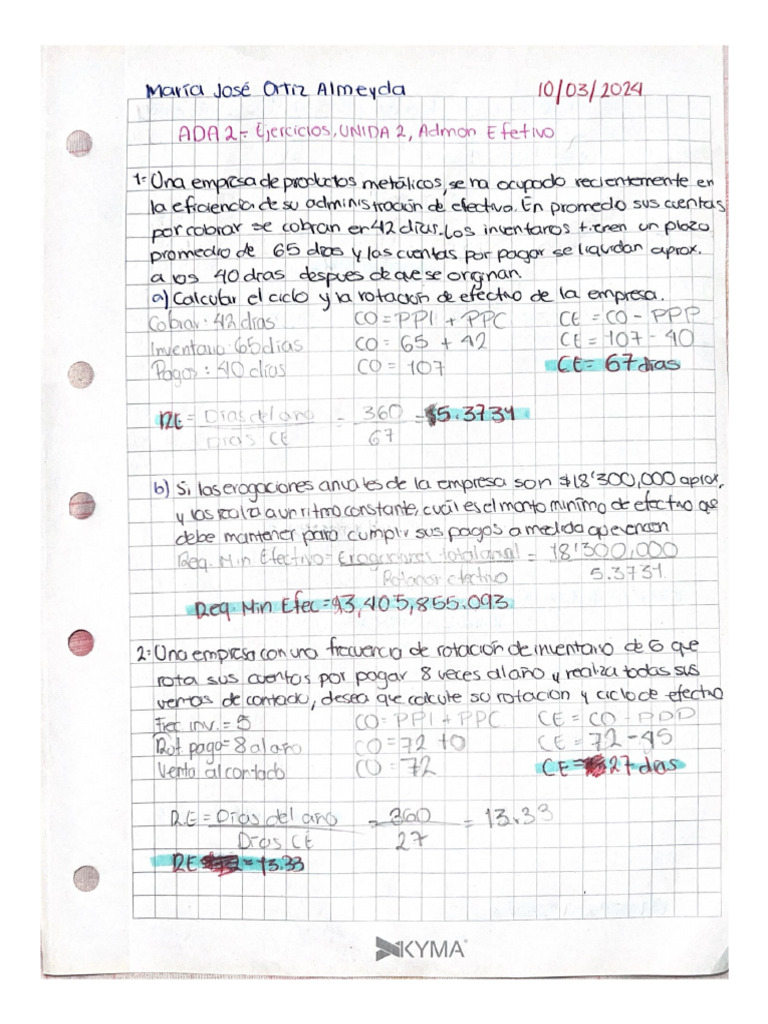 María José Ortiz Almeyda 10/03/2024
ADA 2- Ejercicios, UNIDA 2, Admon Efetivo
1- Una empresa de productos metálicos, se ha ocupado recientemente en
la eficiencia de su administración de efectivo. En promedo sus cuentas
por cobrar se cobran en 42 días. Los inventarios tienen un plazo
promedio de 65 dias y las cuentas por pagar se liquidan aprox.
a los 40 dras despues de que se originan.
a) Calcular el ciclo y la rotación de efectivo de la empresa.
Cobrar: 42 días CO = PPI + PPC CE = CO - PPP
Inventario: 65 dias CO = 65 + 42 CE = 107 - 40
Pagos: 40 dias CO = 107 CE = 67 dias
RE = Dias del año = 360 = 5.3731
Dias CE 67
b) Si las erogaciones anuales de la empresa son $18'300,000 aprox,
y las realiza a un ritmo constante, cuál es el monto minimo de efectivo que
debe mantener para cumplir sus pagos a medida que vencen
Req. Min Efectivo = Erogaciones total anual = 18'300,000
Rotacion efectivo 5.3731
Req. Min Efec = $3,405,855.093
2- Una empresa con una frecuencia de rotación de inventario de 5 que
rota sus cuentas por pagar 8 veces al año y realiza todas sus
ventas de contado, desea que calcute su rotacion y ciclo de efectivo
Frec inv. = 5 CO = PPI + PPC CE = CO - PPP
Rot pago = 8 al año CO = 72 + 0 CE = 72 - 45
Venta al contado CO = 72 CE = 27 dias
RE = Dias del año = 360 = 13.33
Dias CE 27
RE = 13.33
KYMA